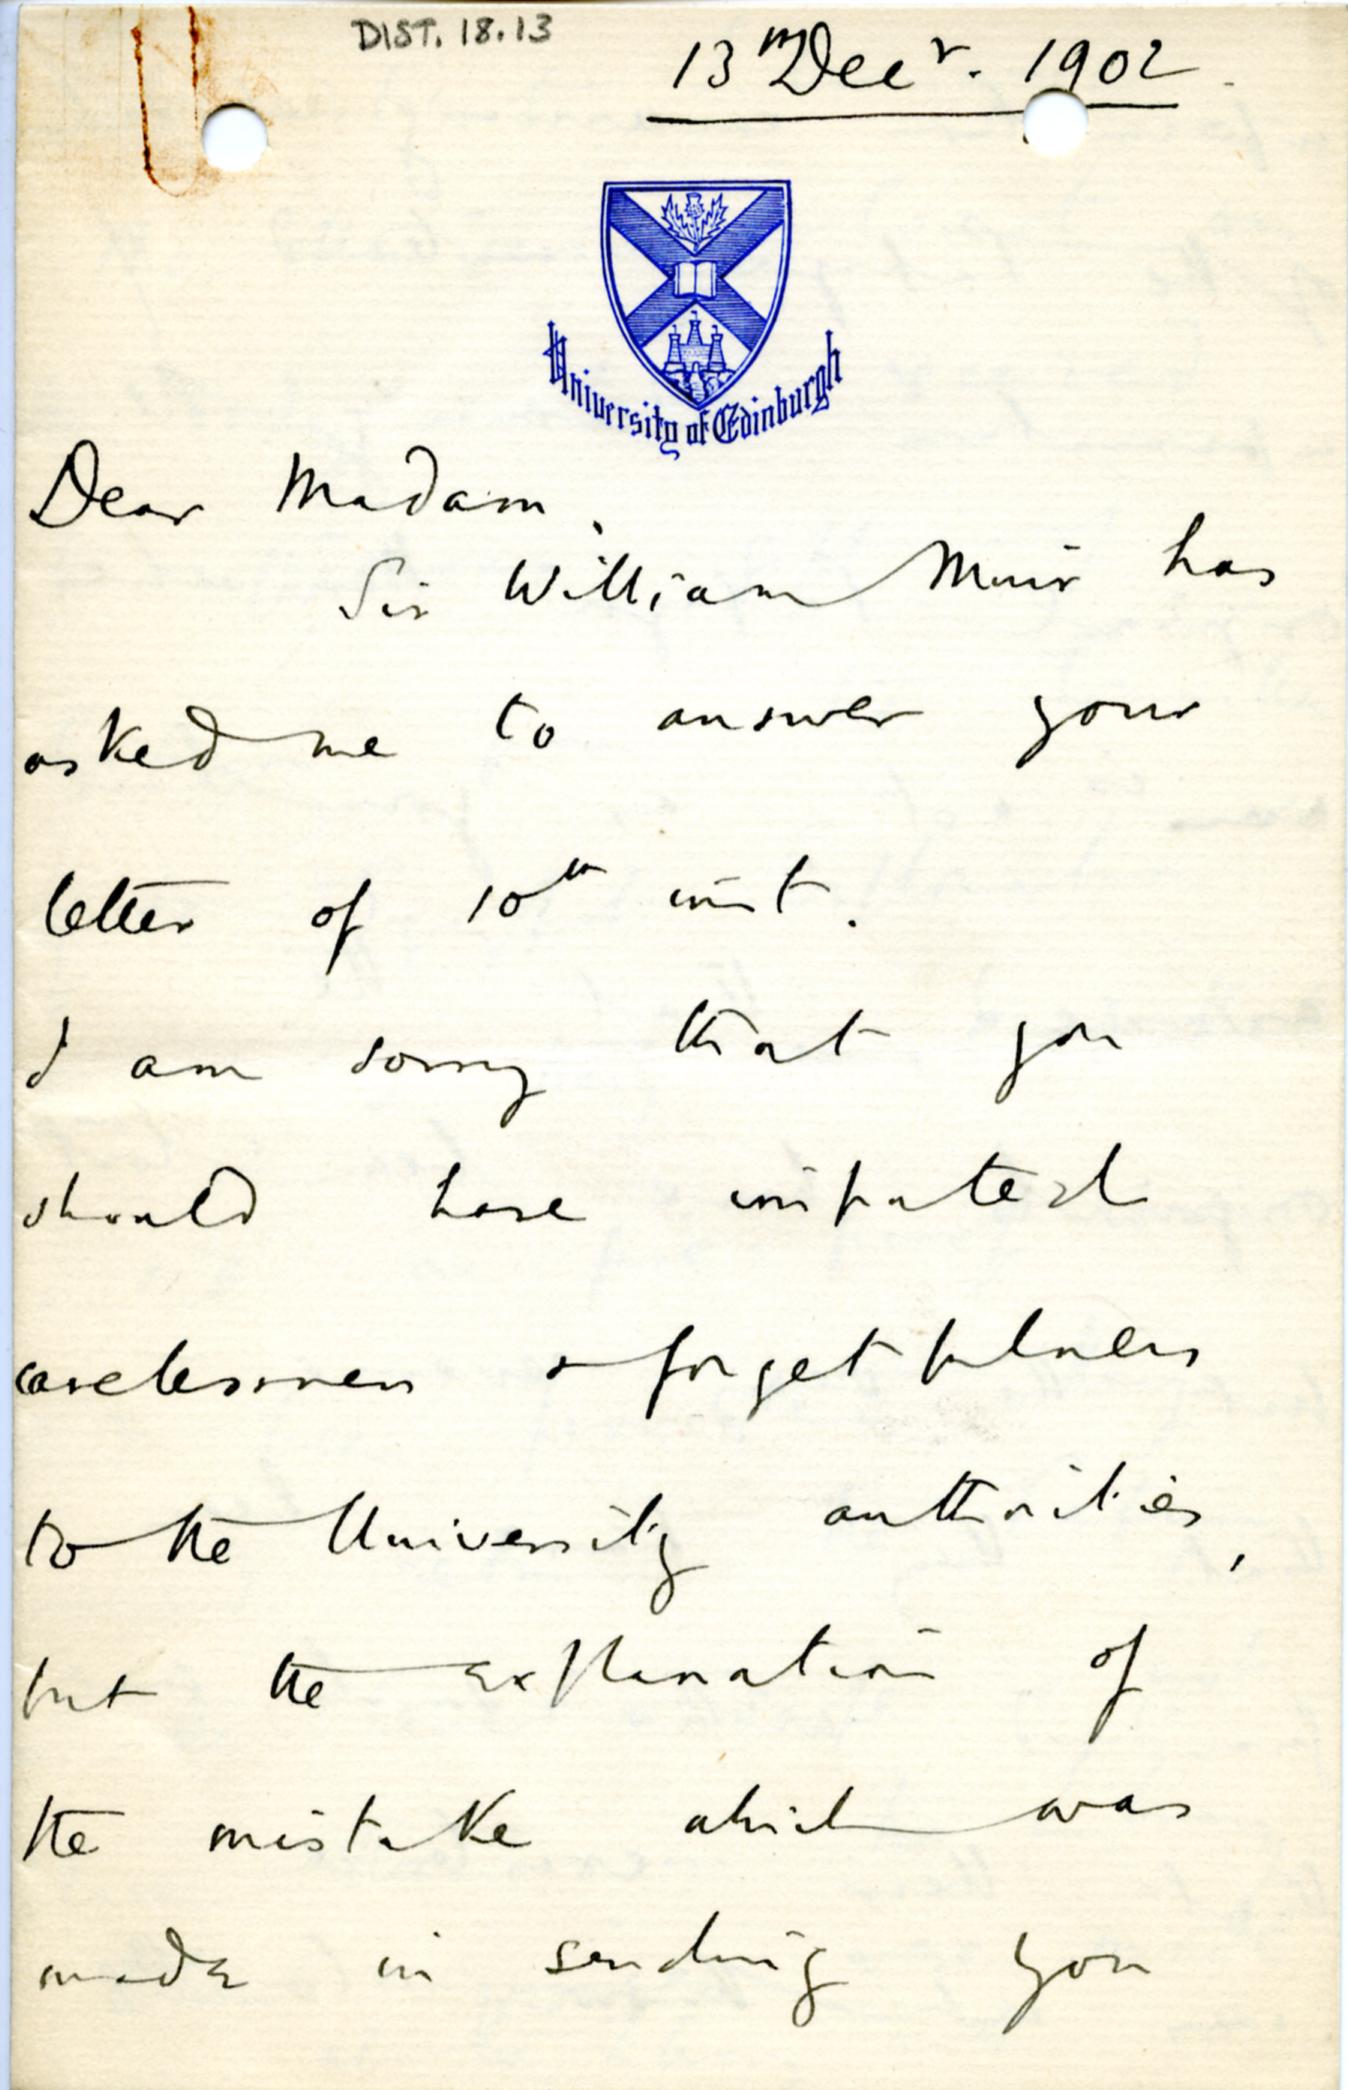 DIST. 18.13
13th Decr. 1902
University of Edinburgh
Dear Madam,
Sir William Muir has
asked me to answer your
letter of 10th inst.
I am sorry that you
should have imputed
carelessness & forgetfulness
to the University authorities,
but the explanation of
the mistake which was
made in sending you